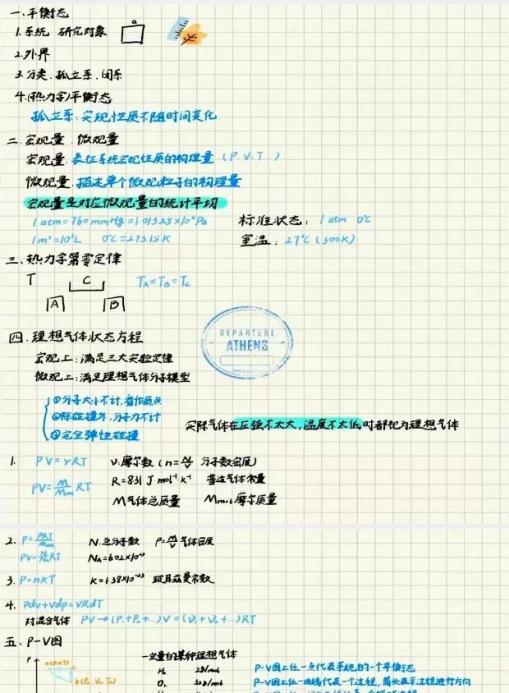 一、平衡态
1.系统 研究对象
2.外界
3.分类 孤立系、闭系
4.热力学平衡态
孤立系:宏观性质不随时间变化
二、宏观量 微观量
宏观量 表征系统宏观性质的物理量(P.V.T)
微观量 描述单个微观粒子的物理量
宏观量是对应微观量的统计平均
1 atm = 760 mmHg = 1.01325×10⁵Pa 标准状态:1 atm 0℃
1m³=10³L 0℃=273.15K 室温:27℃(300K)
三、热力学第零定律
T C TA=TB=TC
A B
DEPARTURE
ATHENS
四、理想气体状态方程
宏观上:满足三大实验定律
微观上:满足理想气体分子模型
①分子大小不计,看作质点
②除碰撞外,分子力不计
③完全弹性碰撞
实际气体在压强不太大,温度不太低时都视为理想气体
1. PV=νRT ν:摩尔数(n=N/V 分子数密度)
R=8.31 J mol⁻¹ K⁻¹ 普适气体常量
PV=M/Mmol RT
M气体总质量 Mmol摩尔质量
2. P=ρRT/Mmol N.总分子数 ρ=M/V 气体密度
NA=6.02×10²³
3. P=nKT K=1.38×10⁻²³ 玻耳兹曼常数
4. Pdv+Vdp=νRdT
对混合气体 PV→(P₁+P₂+…)V=(ν₁+ν₂+…)RT
五、P-V图
一定量的某种理想气体
P-V图上任一点代表系统的一个平衡态
P-V图上任一曲线代表一个过程,箭头表示过程进行方向